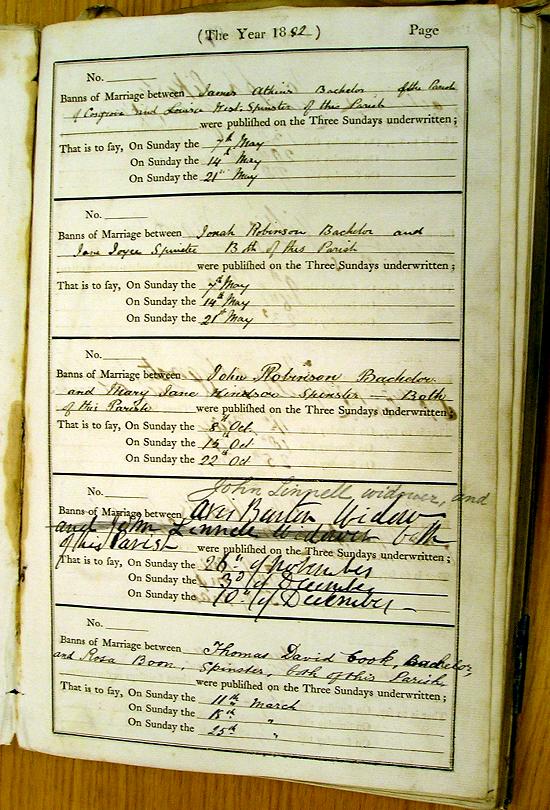 (The Year 1882) Page
No.
Banns of Marriage between James Atkins Bachelor of the Parish
of Cosgrove and Louisa West Spinster of this Parish
were published on the Three Sundays underwritten;
That is to say, On Sunday the 7th May
On Sunday the 14th May
On Sunday the 21st May
No.
Banns of Marriage between Jonah Robinson Bachelor and
Jane Joyce Spinster Both of this Parish
were published on the Three Sundays underwritten;
That is to say, On Sunday the 7th May
On Sunday the 14th May
On Sunday the 21st May
No.
Banns of Marriage between John Robinson Bachelor
and Mary Jane Spinster — Both
of this Parish were published on the Three Sundays underwritten;
That is to say, On Sunday the 8th Oct
On Sunday the 15th Oct
On Sunday the 22nd Oct
No. John Linnell widower, and
Banns of Marriage between Barton Widow
and John Linnell Widower both
of this Parish were published on the Three Sundays underwritten;
That is to say, On Sunday the 26th of November
On Sunday the 3d of December
On Sunday the 10th of December
No.
Banns of Marriage between Thomas David Cook, Bachelor,
and Rosa Boon, Spinster, both of this Parish
were published on the Three Sundays underwritten;
That is to say, On Sunday the 11th March
On Sunday the 18th "
On Sunday the 25th "